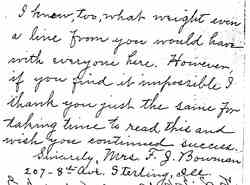 I know, too, what weight even
a line from you would have
with everyone here. However,
if you find it impossible I
thank you just the same for
taking time to read this and
wish you continued success.
Sincerely, Mrs. F. J. Bowman
207-8th Ave. Sterling, Ill